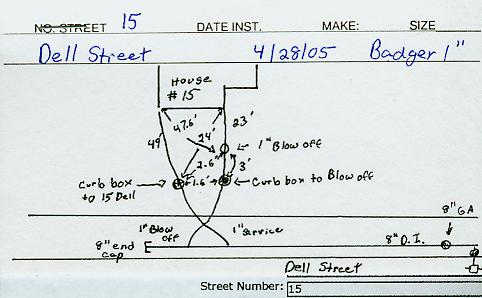 NO. STREET 15 DATE INST. MAKE: SIZE
Dell Street 4/28/05 Badger 1"
House
#15
47.6'
24'
23'
49'
1" Blow off
2.6"
3'
Curb box
to 15 Dell
1.6'
Curb box to Blow off
8" GA
1" Blow
off
1" service
8" D.I.
8" end
cap
Dell Street
Street Number: 15